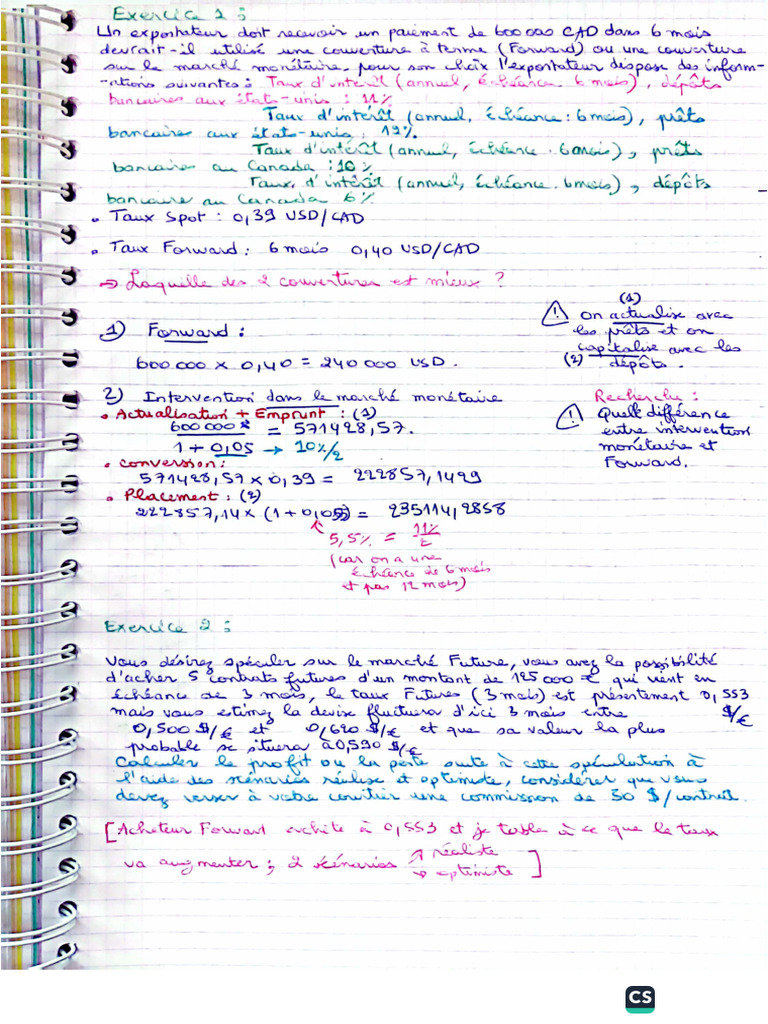 Exercice 1 :
Un exportateur doit recevoir un paiement de 600 000 CAD dans 6 mois
devrait-il utilisé une couverture à terme (Forward) ou une couverture
sur le marché monétaire, pour son choix l'exportateur dispose des inform-
-ations suivantes : Taux d'intérêt (annuel, échéance. 6 mois), dépôts
bancaires aux états-unis : 11%
Taux d'intérêt (annuel, échéance : 6 mois), prêts
bancaires aux états-unis : 12%.
Taux d'intérêt (annuel, échéance. 6 mois), prêts
bancaires au Canada : 10%
Taux d'intérêt (annuel, échéance. 6 mois), dépôts
bancaire au Canada 6%
• Taux Spot : 0,39 USD/CAD
• Taux Forward : 6 mois 0,40 USD/CAD
→ Laquelle des 2 couvertures est mieux ?
1) Forward :
600.000 x 0,40 = 240 000 USD.
(1)
⚠ on actualise avec
les prêts et on
capitalise avec les
(2) dépôts.
2) Intervention dans le marché monétaire
• Actualisation + Emprunt : (1)
600 000 = 571428,57.
1 + 0,05 → 10%/2
• Conversion :
571428,57 x 0,39 = 222857,1429
• Placement : (2)
222857,14 x (1 + 0,055) = 235114,2858
5,5% = 11%
2
(car on a une
échéance de 6 mois
et pas 12 mois)
Recherche :
⚠ Quelle différence
entre intervention
monétaire et
Forward.
Exercice 2 :
Vous désirez spéculer sur le marché Future, vous avez la possibilité
d'acher 5 contrats futures d'un montant de 125 000 € qui vient en
échéance de 3 mois, le taux Futures (3 mois) est présentement 0,553
mais vous estimez la devise fluctuera d'ici 3 mois entre $/€
0,500 $/€ et 0,620 $/€ et que sa valeur la plus
probable se situera à 0,590 $/€
Calculer le profit ou la perte suite à cette spéculation à
l'aide des scénarios réalise et optimiste, considérer que vous
devez verser à votre courtier une commission de 30 $/contrat.
[Acheteur Forward achète à 0,553 et je table à ce que le taux
va augmenter ; 2 scénarios ↗ réaliste
↘ optimiste ]
CS